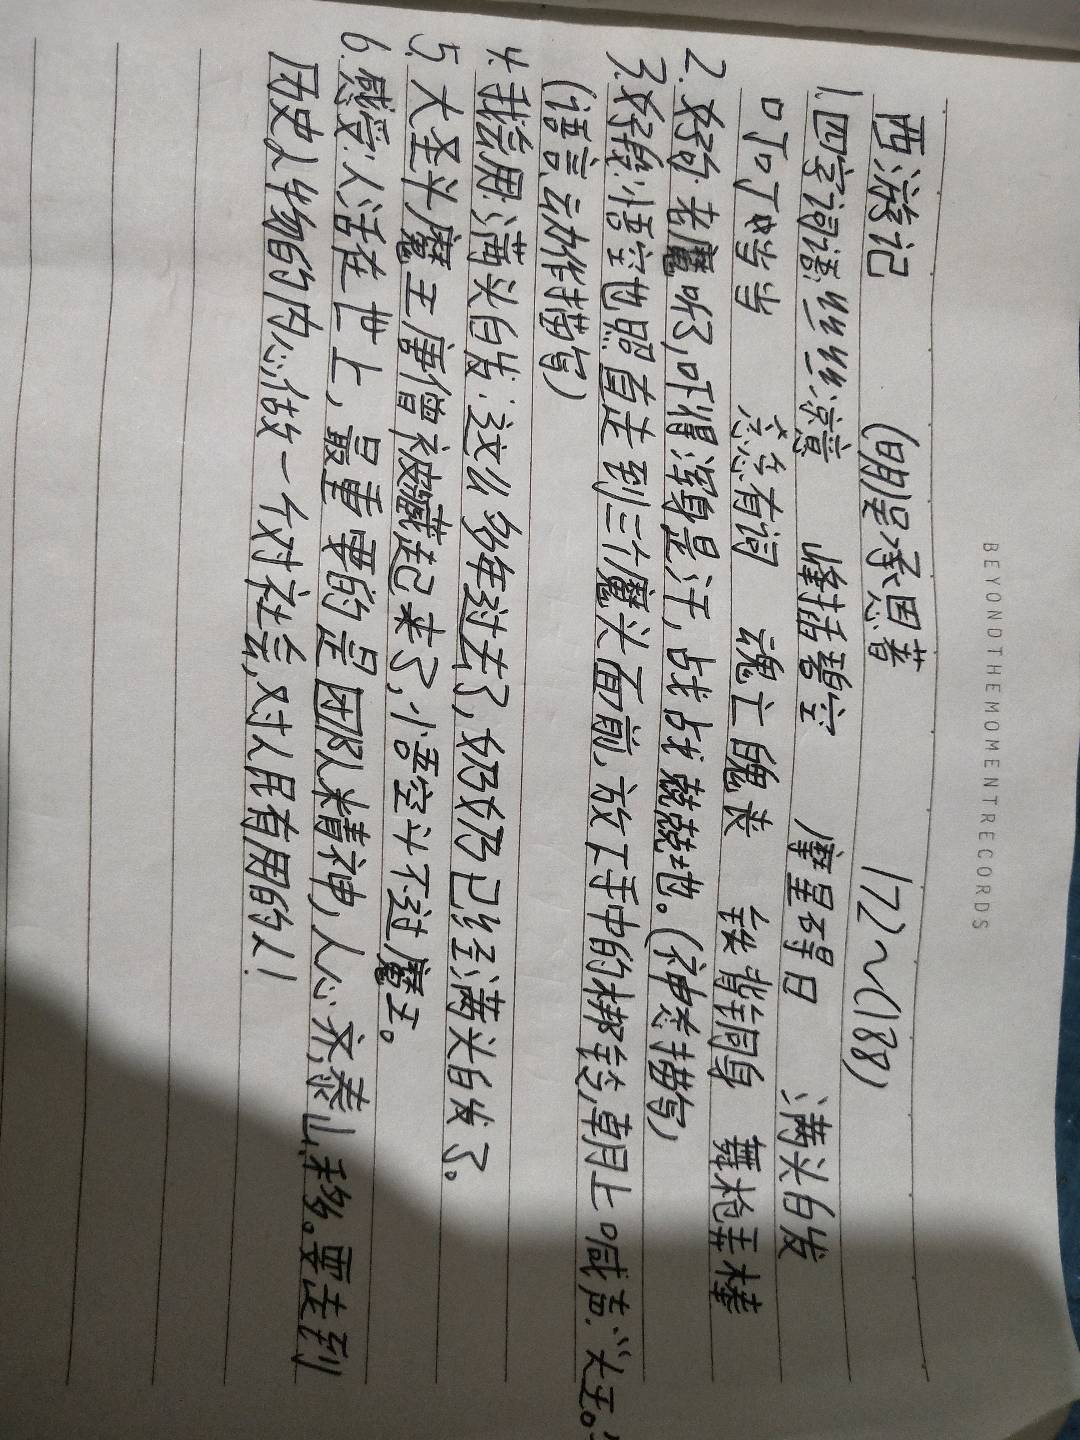 BEYONDTHEMOMENTRECORDS
西游记 (明吴承恩著 172~(188)
1.四字词语:丝丝凉意 峰插碧空 摩星碍日 满头白发
叮叮当当 念念有词 魂亡魄丧 铁背铜身 舞枪弄棒
2.好句:老魔听了,吓得浑身是汗,战战兢兢地。(神态描句)
3.好段:悟空也照直走到三个魔头面前,放下手中的梆铃,朝上喊声:“大王。”
(语言、动作描句)
4.我会用:满头白发:这么多年过去了,奶奶已经满头白发了。
5.大圣斗魔王唐僧被藏起来了,小悟空斗不过魔王。
6.感受:人活在世上,最重要的是团队精神,人心齐,泰山移。要走到
历史人物的内心,做一个对社会,对人民有用的人!